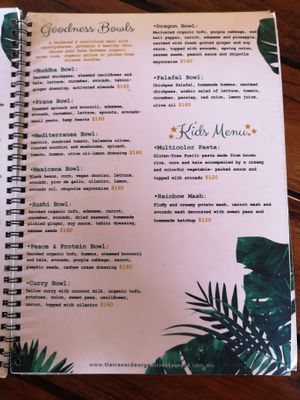 Goodness Bowls
A balanced & nutritious meal with
carbohydrates, proteins & healthy fats.
•Buddha Bowl:
Smoked chickpeas, steamed cauliflower and
kale, lettuce, cucumber, avocado, tahini-
ginger dressing, activated almonds $160
•Prana Bowl:
Steamed spinach and broccoli, edamame,
avocado, cucumber, lettuce, sprouts, avocado-
basil pesto, hemp hearts $160
•Mediterranea Bowl:
Lentils, sundried tomato, kalamata olives,
roasted zucchini and mushrooms, spinach,
tomato, hummus, olive oil-lemon dressing $160
•Mexicana Bowl:
Black beans, corn, vegan chorizo, lettuce,
avocado, pico de gallo, cilantro, lemon,
avocado oil, chipotle mayonnaise $160
•Sushi Bowl:
Smoked organic tofu, edamame, carrot,
cucumber, avocado, dried seaweed, homemade
pickled ginger, soy sauce, tahini dressing,
sesame seeds $160
•Peace & Protein Bowl:
Smoked organic tofu, hummus, steamed broccoli
and kale, avocado, purple cabbage, carrot,
pumpkin seeds, cashew cream dressing $160
•Curry Bowl:
Yellow curry with coconut milk, organic tofu,
potatoes, onion, sweet peas, cauliflower,
carrot, topped with cilantro $160
•Dragon Bowl:
Marinated organic tofu, purple cabbage, red
bell pepper, carrot, edamame and pineapple,
sautéed with fresh grated ginger and soy
sauce, topped with avocado, spring onion,
sesame seeds, peanut sauce and chipotle
mayonnaise $160
•Falafel Bowl:
Chickpea falafel, homemade hummus, smoked
chickpeas, arabic salad of lettuce, tomato,
cucumber, parsley, red onion, lemon juice,
olive oil $160
Kids Menu
•Multicolor Pasta:
Gluten-free Fusili pasta made from brown
rice, corn and kale accompanied by a creamy
and colorful vegetable- packed sauce and
topped with avocado $120
•Rainbow Mash:
Fluffy and creamy potato mash, carrot mash
and avocado mash decorated with sweet peas and
homemade ketchup $120
www.tierraverdeorganicrestaurant.com.mx